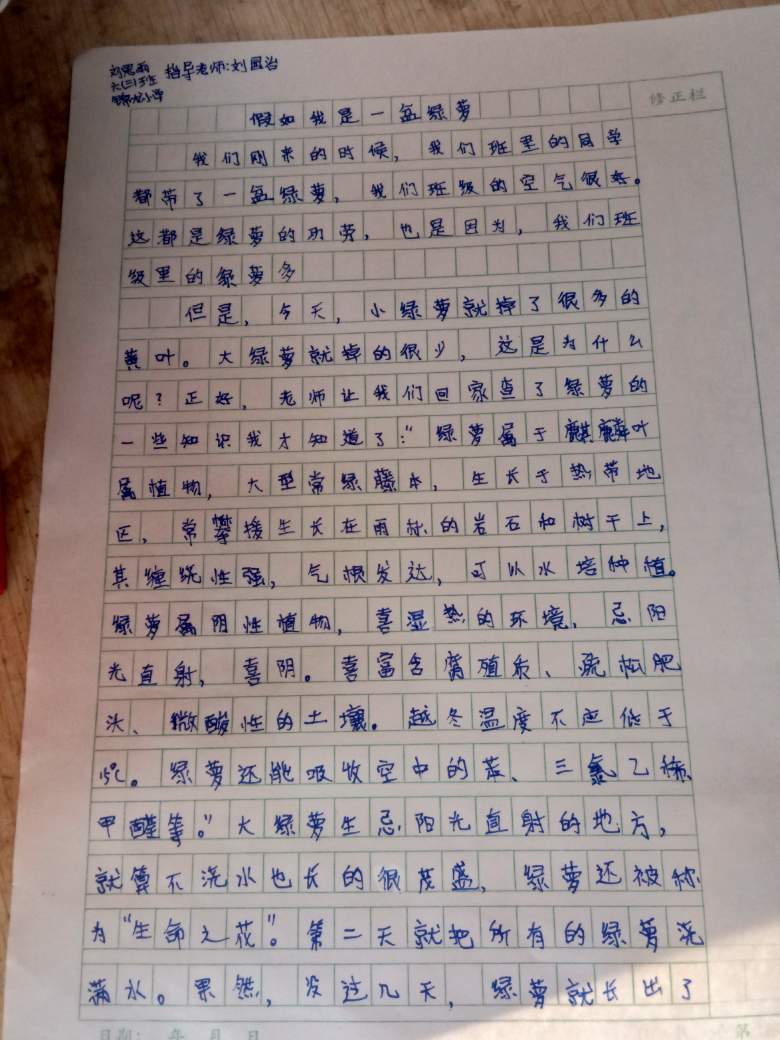 刘思雨 指导老师:刘国治
六(三)班
锦龙小学
修正栏
假如我是一盆绿萝
我们刚来的时候，我们班里的同学
都带了一盆绿萝，我们班级的空气很好。
这都是绿萝的功劳，也是因为，我们班
级里的绿萝多
但是，今天，小绿萝就掉了很多的
黄叶。大绿萝就掉的很少，这是为什么
呢？正好，老师让我们回家查了绿萝的
一些知识我才知道了：“绿萝属于麒麟叶
属植物，大型常绿藤本，生长于热带地
区，常攀援生长在雨林的岩石和树干上，
其缠绕性强，气根发达，可以水培种植。
绿萝属阴性植物，喜湿热的环境，忌阳
光直射，喜阴。喜富含腐殖质、疏松肥
沃、微酸性的土壤。越冬温度不应低于
15℃。绿萝还能吸收空中的苯、三氯乙烯、
甲醛等。”大绿萝生忌阳光直射的地方，
就算不浇水也长的很茂盛，绿萝还被称
为“生命之花”。第二天就把所有的绿萝浇
满水。果然，没过几天，绿萝就长出了
日期： 年 月 日
第